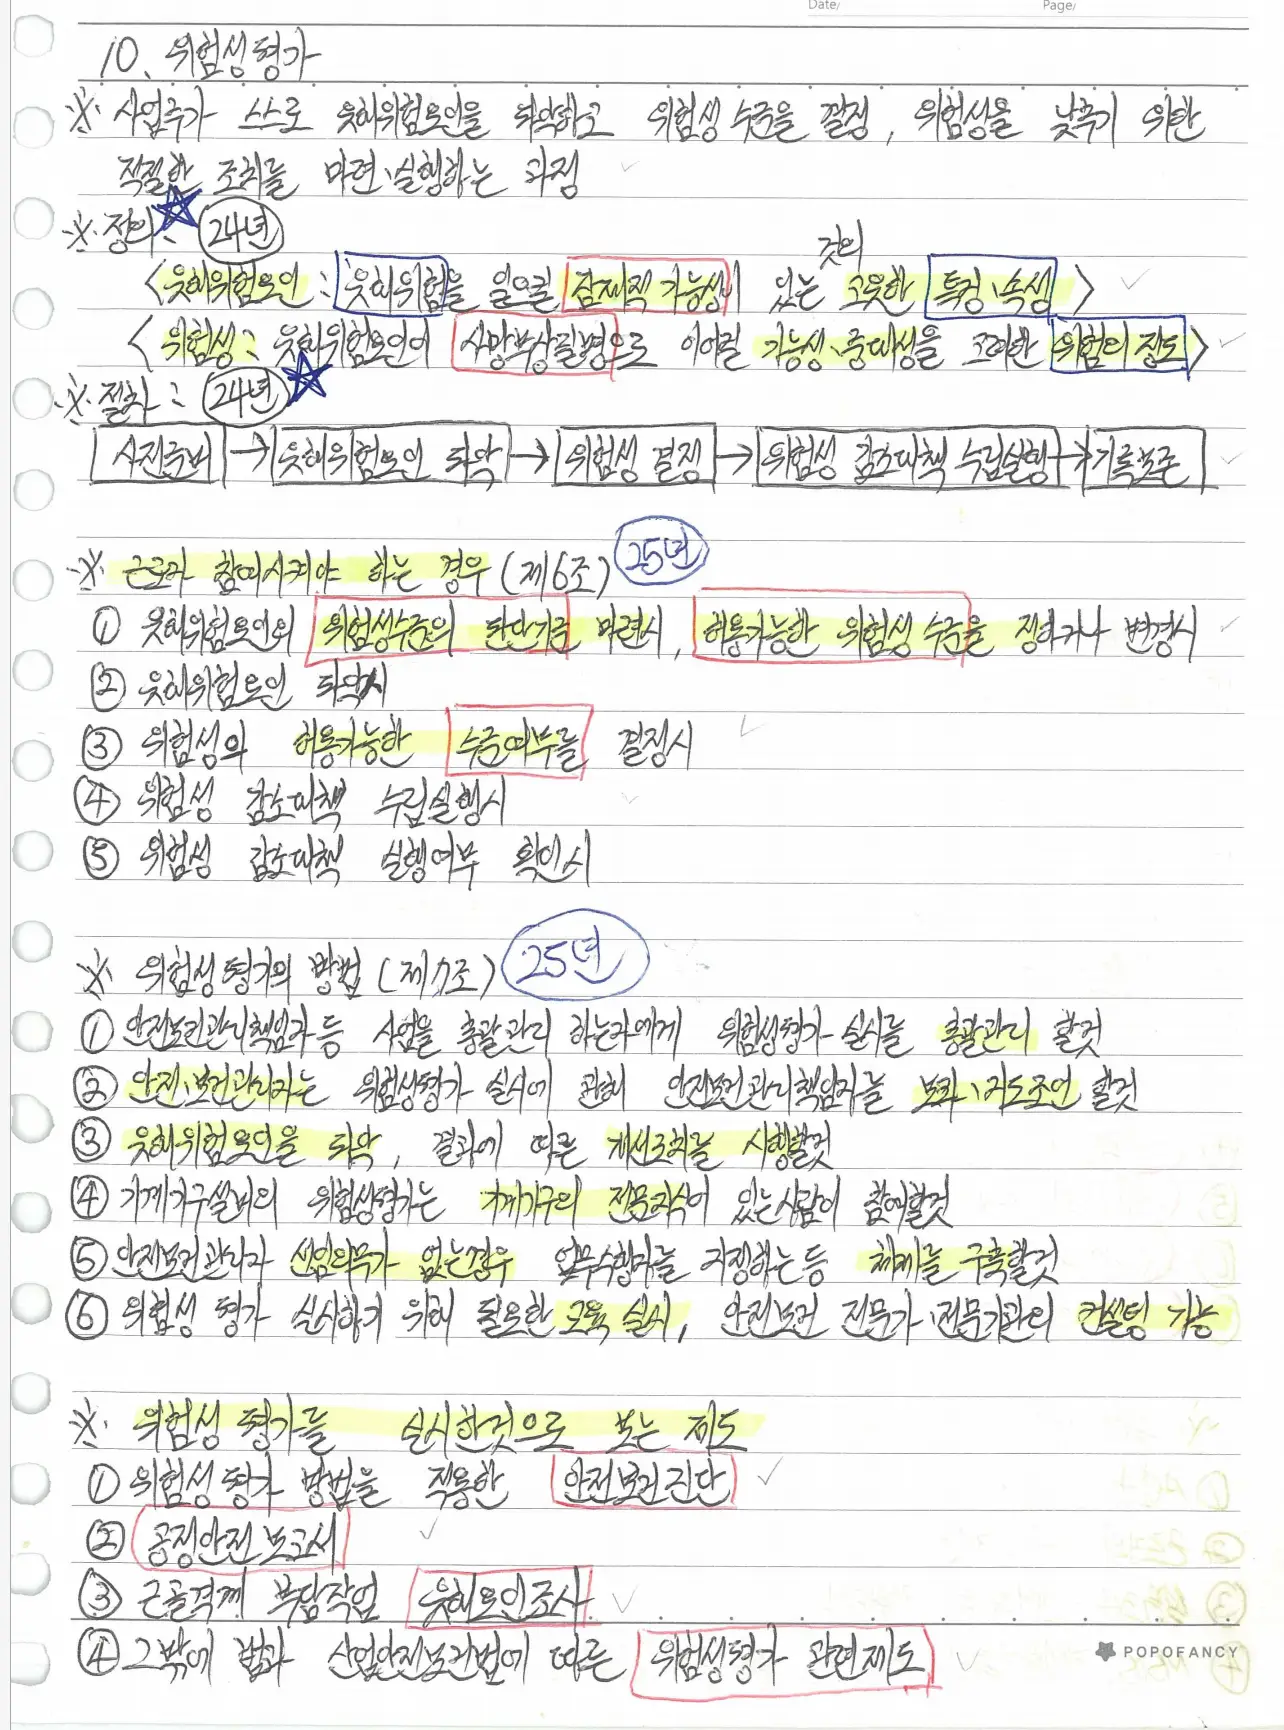 Date/ Page/
10. 위험성평가
※ 사업주가 스스로 유해위험요인을 파악하고 위험성 수준을 결정, 위험성을 낮추기 위한
적절한 조치를 마련·실행하는 과정
※ 정의: ☆ 24년
<유해위험요인 : 유해위험을 일으킬 잠재적 가능성이 있는 것의 고유한 특징·속성>
<위험성 : 유해위험요인이 사망부상질병으로 이어질 가능성·중대성을 고려한 위험의 정도>
※ 절차 : 24년 ☆
사전준비 → 유해위험요인 파악 → 위험성 결정 → 위험성 감소대책 수립실행 → 기록보존
※ 근로자 참여시켜야 하는 경우 (제6조) 25년
① 유해위험요인의 위험성수준의 판단기준 마련시, 허용가능한 위험성 수준을 정하거나 변경시
② 유해위험요인 파악시
③ 위험성의 허용가능한 수준여부를 결정시
④ 위험성 감소대책 수립실행시
⑤ 위험성 감소대책 실행여부 확인시
※ 위험성평가의 방법 (제7조) 25년
① 안전보건관리책임자 등 사업을 총괄관리 하는자에게 위험성평가 실시를 총괄관리 할것
② 안전·보건관리자는 위험성평가 실시에 관해 안전보건관리책임자를 보좌·지도조언 할것
③ 유해위험요인을 파악, 결과에 따른 개선조치를 시행할것
④ 기계기구설비의 위험성평가는 기계기구의 전문지식이 있는사람이 참여할것
⑤ 안전보건관리자 선임의무가 없는경우 업무수행자를 지정하는 등 체계를 구축할것
⑥ 위험성 평가 실시하기 위해 필요한 교육 실시, 안전보건 전문가·전문기관의 컨설팅 가능
※ 위험성 평가를 실시한것으로 보는 제도
① 위험성평가 방법을 적용한 안전보건진단
② 공정안전보고서
③ 근골격계 부담작업 유해요인조사
④ 그밖에 법과 산업안전보건법에 따른 위험성평가 관련제도
POPOFANCY